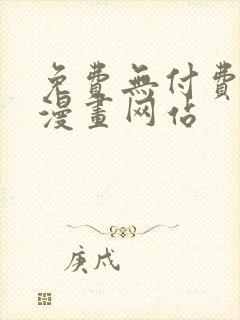 免費無付費
漫畫网佔
庚戌